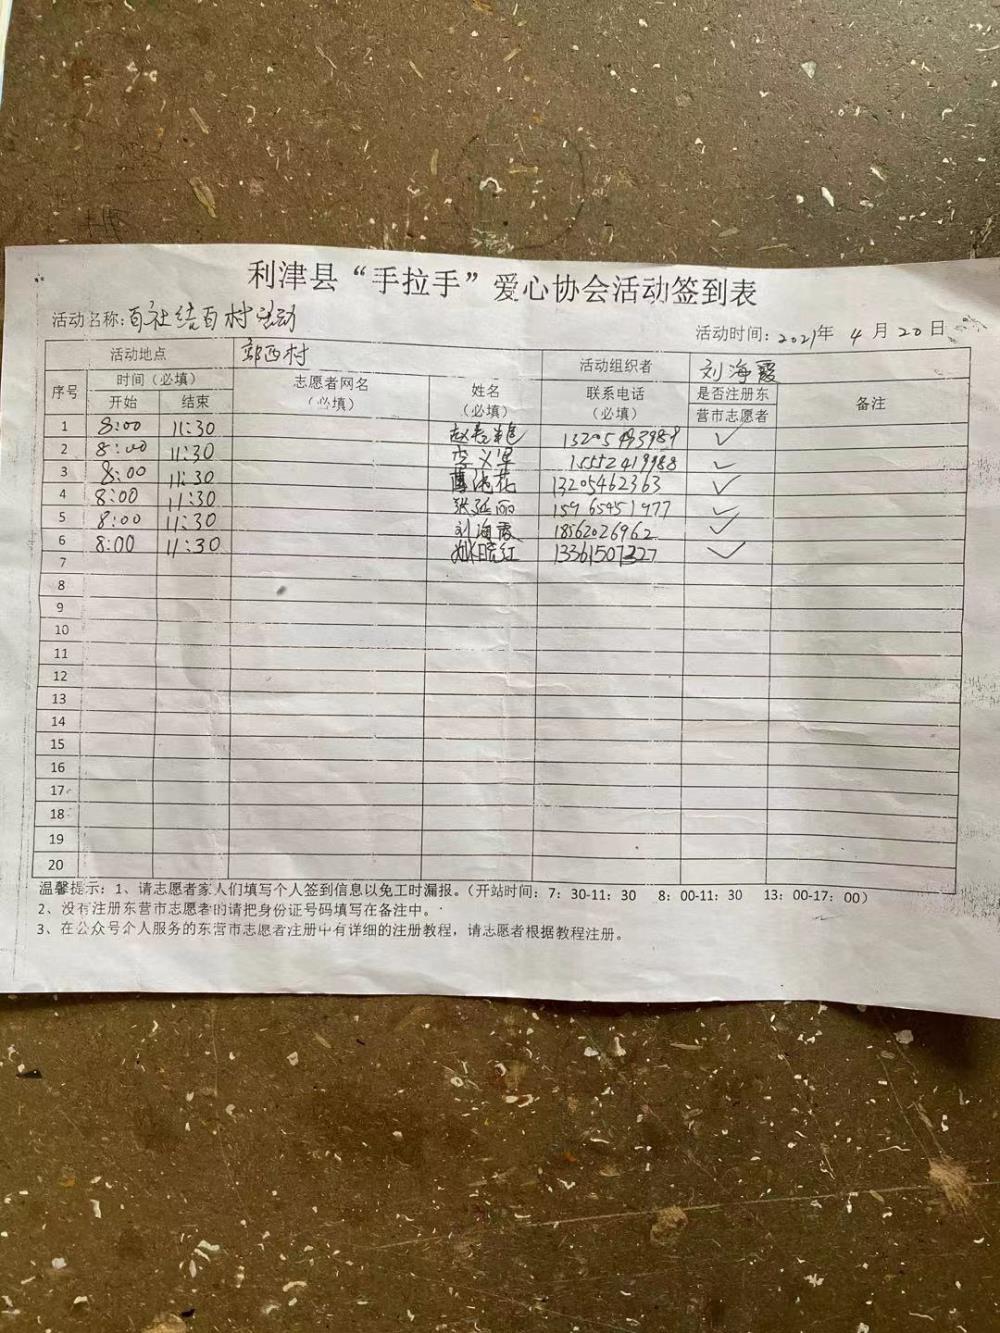 利津县“手拉手”爱心协会活动签到表
活动名称:百社结百村活动 活动时间: 2021年 4 月 20 日
活动地点 郭西村 活动组织者 刘海霞
序号 时间（必填） 志愿者网名（必填） 姓名（必填） 联系电话（必填） 是否注册东营市志愿者 备注
开始 结束
1 8:00 11:30 13205493989 ✓
2 8:00 11:30 李义军 15552419988 ✓
3 8:00 11:30 13205462363 ✓
4 8:00 11:30 张延丽 15965451977 ✓
5 8:00 11:30 刘海霞 18562026962 ✓
6 8:00 11:30 姚晓红 13361507327 ✓
7
8
9
10
11
12
13
14
15
16
17
18
19
20
温馨提示：1、请志愿者家人们填写个人签到信息以免工时漏报。（开站时间：7：30-11：30 8：00-11：30 13：00-17：00）
2、没有注册东营市志愿者的请把身份证号码填写在备注中。
3、在公众号个人服务的东营市志愿者注册中有详细的注册教程，请志愿者根据教程注册。